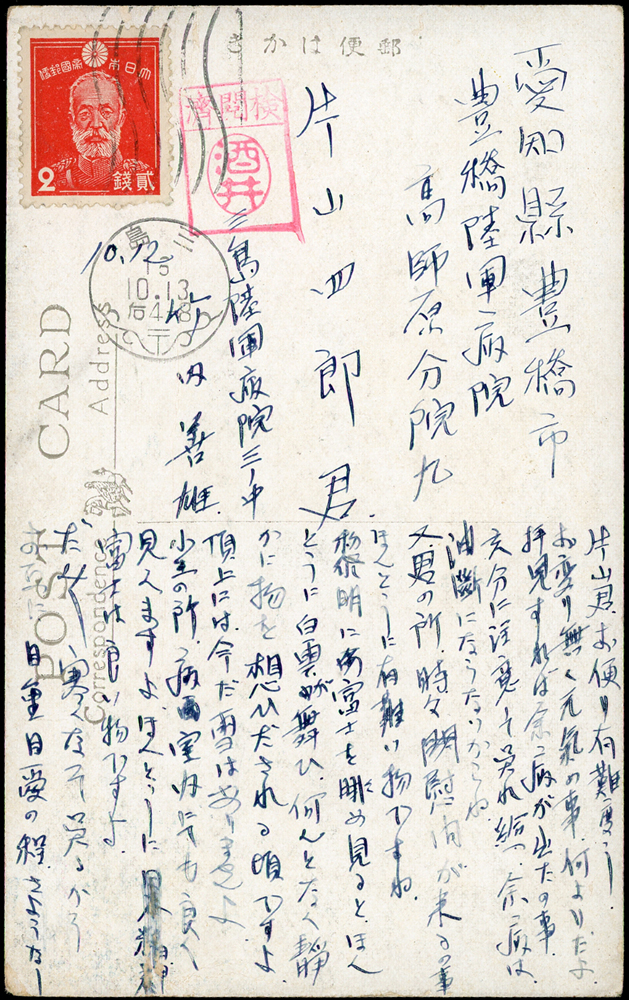 きかは便郵
大日本帝國郵便
2
貳錢
検閲濟
酒井
三島
15
10.13
10.12.
愛知縣豊橋市
豊橋陸軍病院
高師原分院九
片山四郎君
三島陸軍病院三ノ中
竹内善雄
POST CARD
Correspondence
Address
片山君お便り有難度う
お変り無く元氣の事何よりだよ
拝見すれば余病が出たの事
充分に注意して呉れ給へ余病は
油斷にならないからね
又君の所時々関慰問が来るの事
ほんとうに有難い物ですね
に富士を眺め見るとほん
とうに白雲が舞ひ何んとなく静
かに物を想ひだされる頃ですよ
頂上には今だ雪はありませんよ
小生の所病室内にても良く
見へますよほんとうに日本精神
富士は良い物ですよ
だん／＼寒くなって呉るから
自重自愛の程さようなら